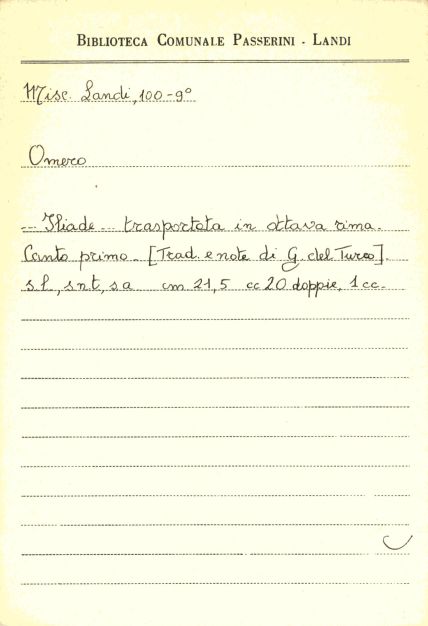 BIBLIOTECA COMUNALE PASSERINI - LANDI
Misc. Landi, 100-9°
Omero
... Iliade ... trasportata in ottava rima.
Canto primo. [Trad. e note di G. del Turco].
s.l., s.n.t., s.a cm 21,5 cc 20 doppie, 1 cc.